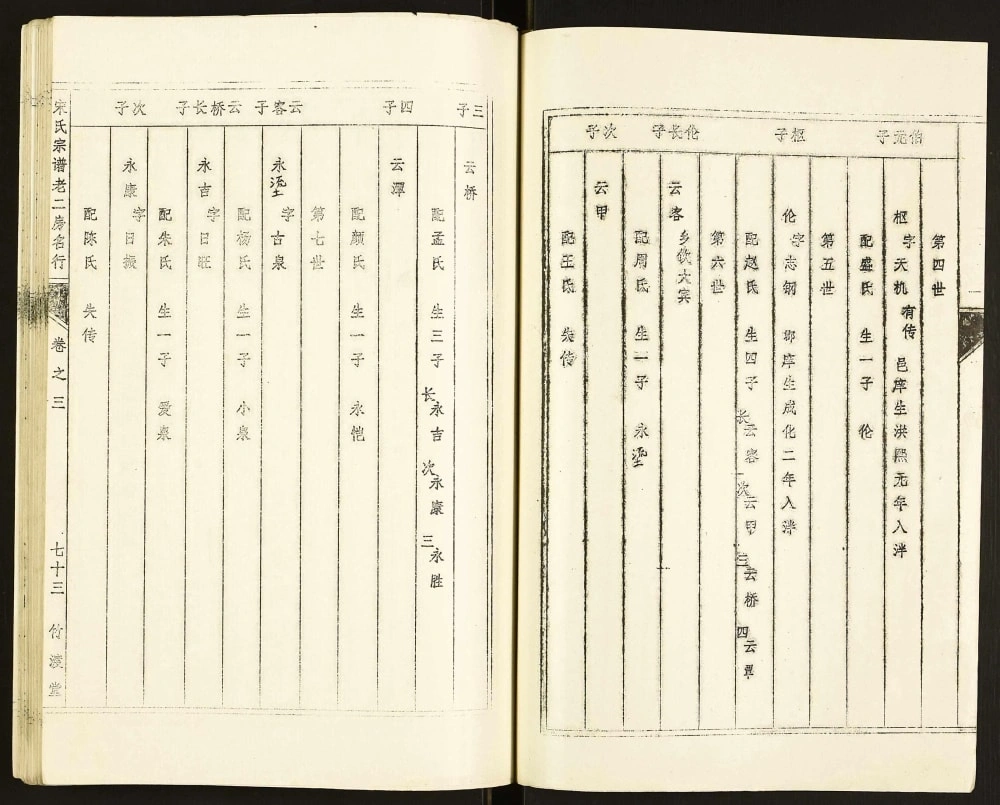 第四世
伯元子
枢 字天机 有传 邑庠生洪熙元年入泮
配盛氏 生一子 伦
第五世
枢子
伦 字志钢 郡庠生成化二年入泮
配赵氏 生四子 长云客 次云甲 三云桥 四云潭
第六世
伦长子
云客 乡饮大宾
配周氏 生一子 永
次子
云甲
配王氏 失传
三子
云桥
配孟氏 生三子 长永吉 次永康 三永胜
四子
云潭
配颜氏 生一子 永恺
第七世
云客子
永 字古泉
配杨氏 生一子 小泉
云桥长子
永吉 字日旺
配朱氏 生一子 爱泉
次子
永康 字日振
配陈氏 失传
宋氏宗谱老二房名行 卷之三 七十三 竹淩堂